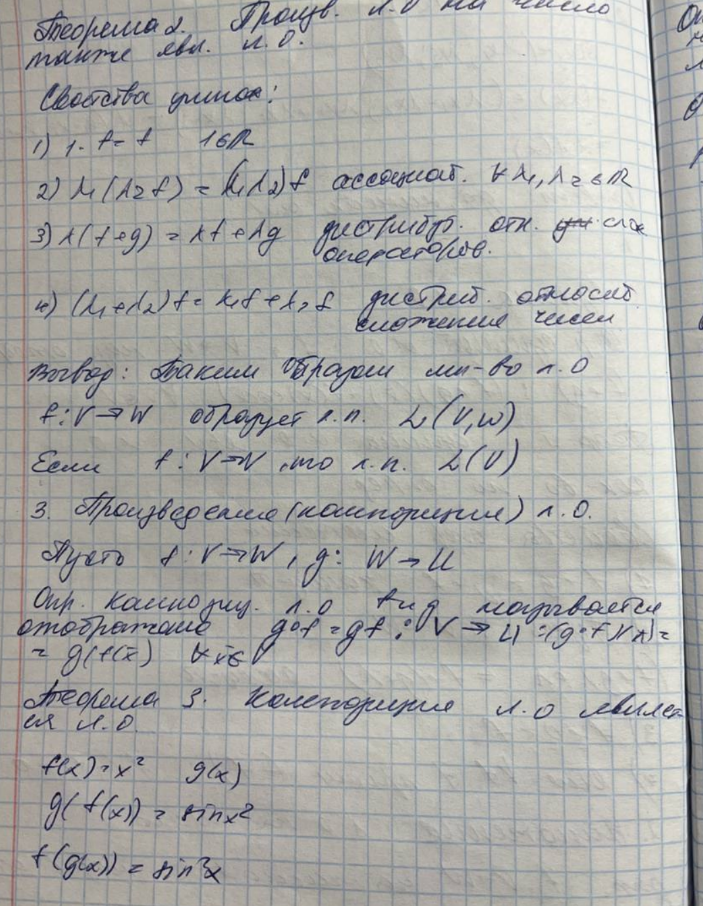 Теорема 2. Произв. л.О на число
также явл. л.О.
Свойства умнож:
1) 1·f = f 1∈R
2) λ₁(λ₂f) = (λ₁λ₂)f ассоциат. ∀λ₁,λ₂∈R
3) λ(f+g) = λf+λg дистрибут. отн. слож
операторов.
4) (λ₁+λ₂)f = λ₁f+λ₂f дистриб. относит.
сложения чисел
Вывод: Таким образом мн-во л.О
f:V→W образует л.п. L(V,W)
Если f:V→V, то л.п. L(V)
3. Произведение (композиция) л.О.
Пусть f:V→W, g: W→U
Опр. Композиц. л.О f и g называется
отображение g∘f = gf : V→U :(g∘f)(x̄)=
= g(f(x̄)) ∀x̄∈
Теорема 3. Композиция л.О являет
ся л.О.
f(x)=x² g(x)
g(f(x)) = sinx²
f(g(x)) = sin²x